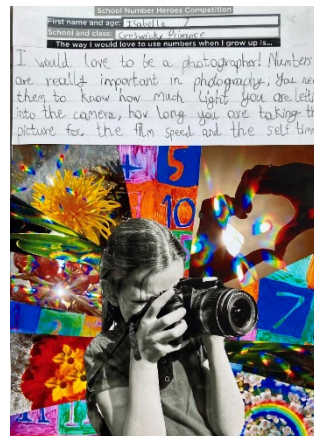 School Number Heroes Competition
First name and age: Isabella 7
School and class: Primrose
The way I would love to use numbers when I grow up is...
I would love to be a photographer! Numbers
are really important in photography, You ne
them to know how much light you are lett
into the camera, how long you are taking th
picture for, the film speed and the self tim
+ 5
10
7
2